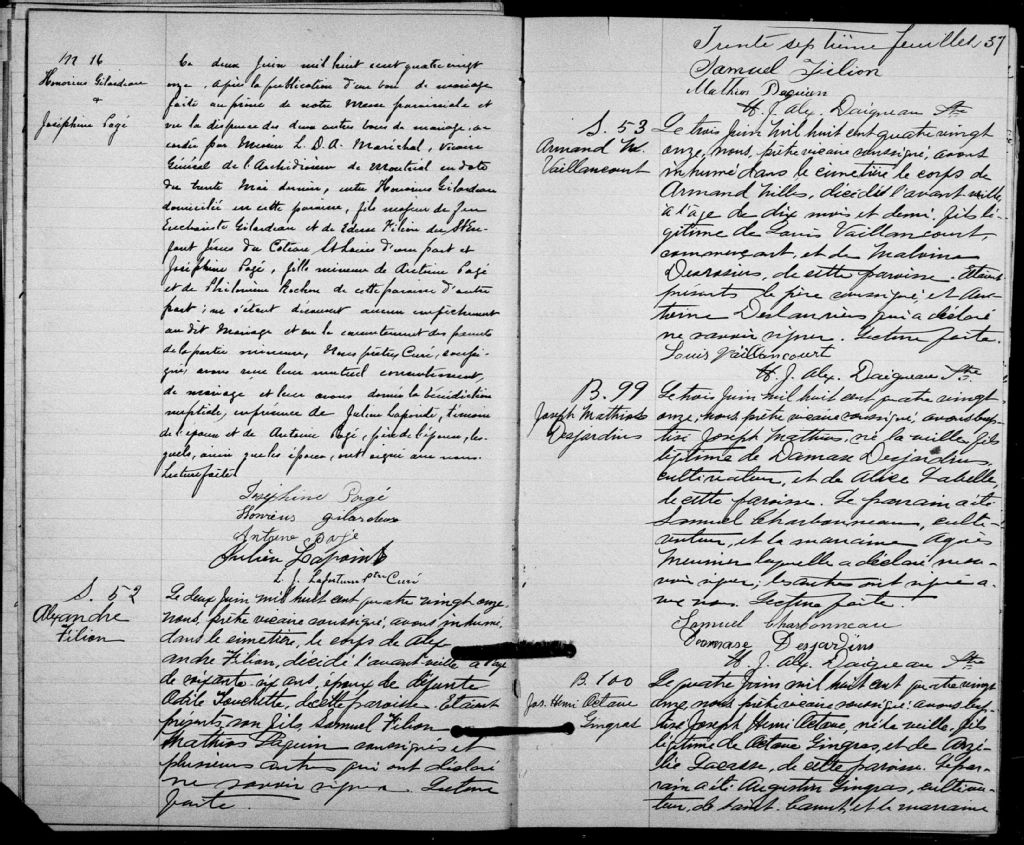 M 16
Honorius Gilardeau
&
Joséphine Pagé
Ce deux Juin mil huit cent quatre vingt
onze, Après la publication d'un ban de mariage
faite au prône de notre Messe paroissiale et
vu la dispense des deux autres bans de mariage, ac
cordée par Messire L. D. A. Maréchal, Vicaire
Général de l'Archidiocèse de Montréal en date
du trente Mai dernier, entre Honorius Gilardeau
domicilié en cette paroisse, fils majeur de feu
Euchariste Gilardeau et de Filion du St En-
fant Jésus du Coteau St Louis d'une part et
Joséphine Pagé, fille mineure de Antoine Pagé
et de Philomène Rochon de cette paroisse d'autre
part ; ne s'étant découvert aucun empêchement
au dit Mariage et vu le consentement des parents
de la partie mineure, Nous prêtre, Curé, soussi-
gné, avons reçu leur mutuel consentement,
de mariage et leur avons donné la bénédiction
nuptiale, en présence de Julien Lapointe, témoin
de l'époux et de Antoine Pagé, père de l'épouse, les-
quels, ainsi que les époux, ont signé avec nous.
Lecture faite
Joséphine Pagé
Honorius gilardeau
Antoine Paje
Julien Lapointe
L. J. Lafortune ptre Curé
S. 52
Alexandre
Filion
Le deux Juin mil huit cent quatre vingt onze,
nous, prêtre vicaire soussigné, avons inhumé
dans le cimetière, le corps de Alex
andre Filion, décédé l'avant veille à l'age
de soixante-six ans, époux de défunte
Odile Touchette, de cette paroisse. Etaient
présents son fils, Samuel Filion
Mathias Paquin soussignés et
plusieurs autres qui ont déclaré
ne savoir signer. Lecture
faite.
Trente septième feuillet 37
Samuel Filion
Mathias Paquin
H. J. Alex. Daigneau Ptre
S. 53
Armand N.
Vaillancourt
Le trois Juin Mil huit cent quatre vingt
onze, nous, prêtre vicaire soussigné, avons
inhumé dans le cimetière le corps de
Armand, décédé l'avant veille,
à l'age de dix mois et demi, fils lé-
gitime de Louis Vaillancourt,
commerçant, et de Malvina
Desrosiers, de cette paroisse. Etaient
présents le père soussigné et An-
toine Deslauriers qui a déclaré
ne savoir signer. Lecture faite.
Louis Vaillancourt
H. J. Alex. Daigneau Ptre
B. 99
Joseph Mathias
Desjardins
Le trois Juin, mil huit cent quatre vingt-
onze, nous, prêtre vicaire soussigné, avons bap-
tisé Joseph Mathias, né la veille, fils
légitime de Damase Desjardins,
cultivateur, et de Alice Labelle,
de cette paroisse. Le parrain a été
Samuel Charbonneau, culti-
vateur, et la marraine Agnès
Meunier laquelle a déclaré ne sa-
voir signer ; les autres ont signé a-
vec nous. Lecture faite.
Samuel Charbonneau
Damase Desjardins
H. J. Alex. Daigneau Ptre
B. 100
Jos. Henri Octave
Gingras
Le quatre Juin mil huit cent quatre vingt
onze, nous, prêtre vicaire soussigné avons bap-
tisé Joseph Henri Octave, né la veille, fils
légitime de Octave Gingras, et de Azé-
lie Lacasse, de cette paroisse. Le par-
rain a été Augustin Gingras, cultiva-
teur, de Saint Canut, et la marraine